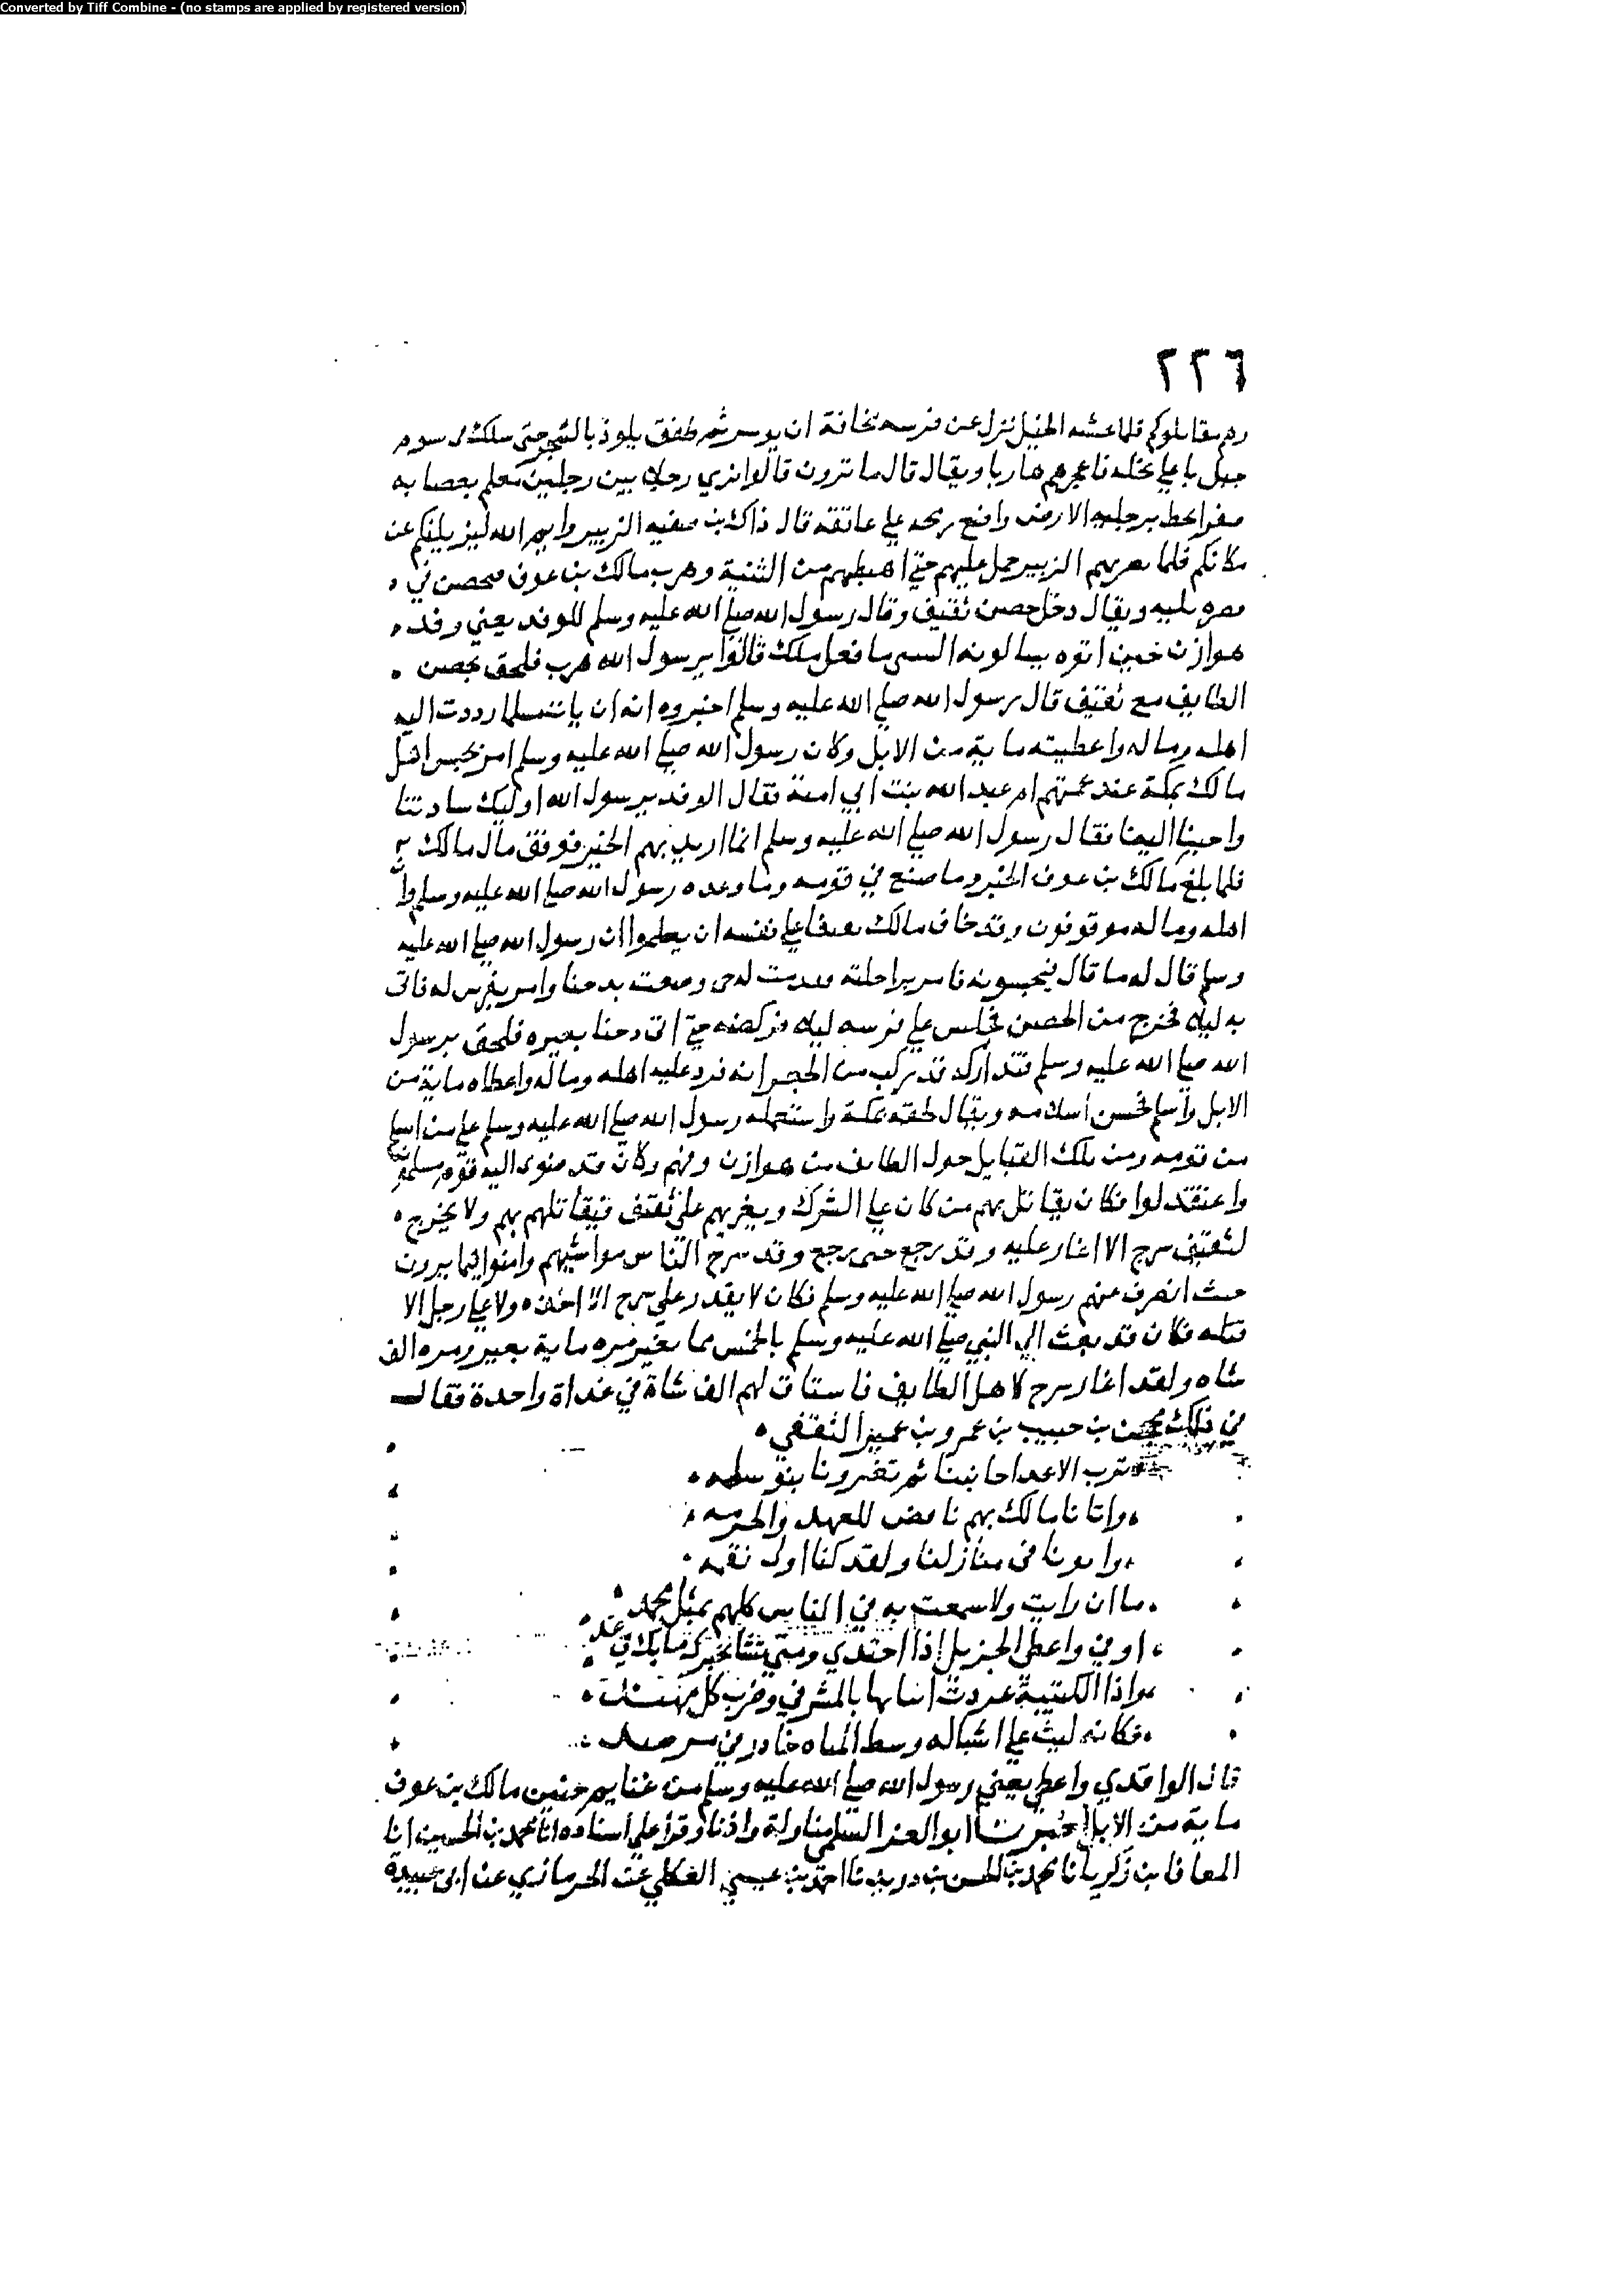 Converted by Tiff Combine - (no stamps are applied by registered version)
٢٢٦
نزل عن فرسه مخافة ان يوسر ثم طفق يلوذ بالشجر حتى سلك
جبل باعلي نخله فاعجزهم هاربا ويقال قال ما ترون قالوا نري رجلا بين رجلين معلم بعصابه
صفرا يخط برجليه الارض واضع رمحه علي عاتقه قال ذاك بن صفيه الزبير وايم الله ليزيلنكم عن
مكانكم فلما بصر بهم الزبير حمل عليهم حتى اهبطهم من الثنية وهرب مالك بن عوف فحصن في
ويقال دخل حصن ثقيف وقال رسول الله صلي الله عليه وسلم للوفد يعني وفد
هوازن حين اتوه يسالونه السبي ما فعل ملك قالوا يرسول الله هرب فلحق بحصن
الطايف مع ثقيف قال رسول الله صلي الله عليه وسلم اخبروه انه ان يات مسلما رددت اليه
اهله وماله واعطيته ماية من الابل وكان رسول الله صلي الله عليه وسلم امر بحبس اهل
مالك بمكة عند عمتهم ام عبد الله بنت ابي امية فقال الوفد يرسول الله اوليك سادتنا
واحبنا الينا فقال رسول الله صلي الله عليه وسلم انما اريد بهم الخير فوقف مال مالك
فلما بلغ مالك بن عوف الخبر وما صنع في قومه وما وعده رسول الله صلي الله عليه وسلم وان
اهله وماله موقوفون وقد خاف مالك ثقيفا علي نفسه ان يعلموا ان رسول الله صلي الله عليه
وسلم قال له ما قال فيحبسونه فامر براحلته فقدمت له حتى وضعت بدحنا وامر بفرس له فاتى
به ليلا فخرج من الحصن فجلس علي فرسه ليلا فركضه حتى اتى دحنا بعيره فلحق برسول
الله صلي الله عليه وسلم فتداركه قد ركب من الجعرانه فرد عليه اهله وماله واعطاه ماية من
الابل واسلم فحسن اسلامه ويقال لحقه بمكة واستعمله رسول الله صلي الله عليه وسلم علي من اسلم
من قومه ومن تلك القبايل حول الطايف من هوازن وفهم وكان قد ضوى اليه قوم مسلمون
واعتقد لوا فكان يقاتل بهم من كان علي الشرك ويغير بهم علي ثقيف فيقاتلهم بهم ولا يخرج
لثقيف سرح الا اغار عليه وقد رجع حين رجع وقد سرح الناس مواشيهم وامنوا فيما يرون
حيث انصرف عنهم رسول الله صلي الله عليه وسلم فكان لا يقدر علي سرح الا اخذه ولا علي رجل الا
قتله فكان قد بعث الي النبي صلي الله عليه وسلم بالخمس مما يغير مره ماية بعير ومره الف
شاه ولقد اغار سرح لاهل الطايف فاستاق لهم الف شاة في غداة واحدة فقال
في ذلك محجن بن حبيب بن عمرو بن عمير الثقفي
ترب الاعدا جانبنا ثم تغزونا بنو سلمه
واتانا مالك بهم ناقض للعهد والحرمه
واتونا في منازلنا ولقد كنا اولى نقمه
ما ان رايت ولا سمعت به في الناس كلهم بمثل محمد
اوفي واعطى الجزيل اذا اجتدي ومتي تشا يخبرك ما يك في غد
واذا الكتيبة عردت انيابها بالمشرفي وضرب كل مهند
فكانه ليث علي اشباله وسط المباه خادر في مرصد
قال الواقدي واعطي يعني رسول الله صلي الله عليه وسلم من غنايم حنين مالك بن عوف
ماية من الابل اخبرنا ابو العز السلمي مناولة واذنا وقرا علي اسناده انا محمد بن الحسين انا
المعافا بن زكريا نا محمد بن الحسن بن دريد نا احمد بن عيسي العكلي عن الحرمازي عن ابي عبيدة